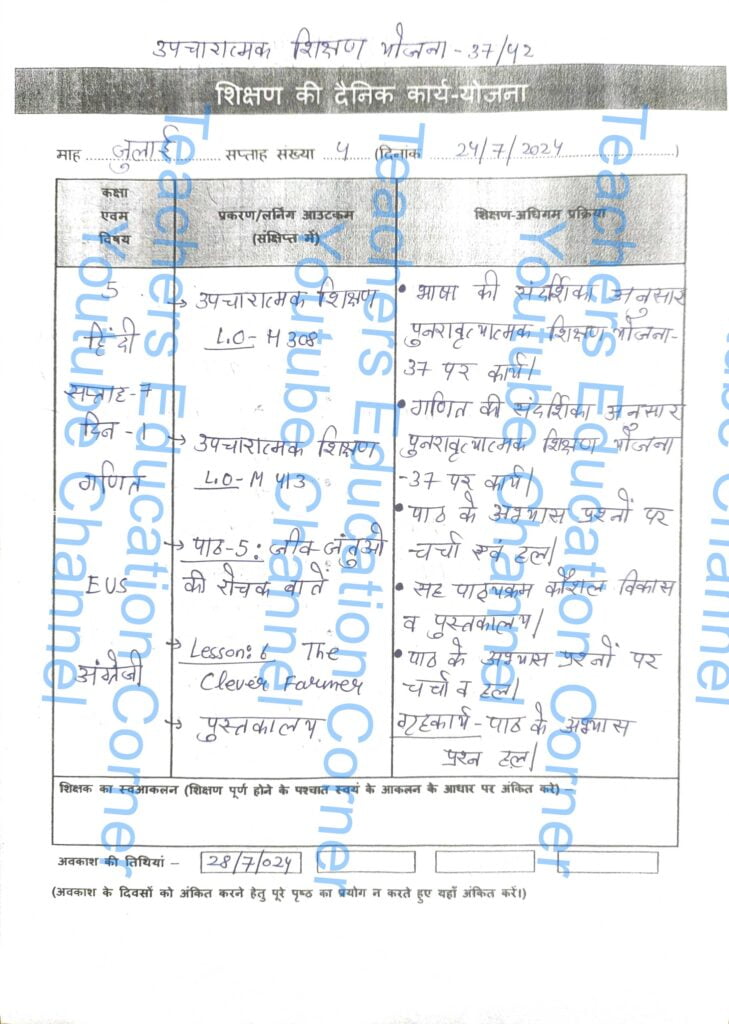 उपचारात्मक शिक्षण योजना - 37/42
शिक्षण की दैनिक कार्य-योजना
माह जुलाई सप्ताह संख्या 4 (दिनांक 24/7/2024)
कक्षा
एवम
विषय
प्रकरण/लर्निंग आउटकम
(संक्षिप्त में)
शिक्षण-अधिगम प्रक्रिया
5
हिंदी
सप्ताह-7
दिन -1
गणित
EVS
अंग्रेजी
→ उपचारात्मक शिक्षण
L.O- H 308
→ उपचारात्मक शिक्षण
L.O- M 413
→ पाठ-5: जीव-जंतुओ
की रोचक बाते
→ Lesson: 6 The
Clever Farmer
→ पुस्तकालय
• भाषा की संदर्शिका अनुसार
पुनरावृत्यात्मक शिक्षण योजना-
37 पर कार्य।
• गणित की संदर्शिका अनुसार
पुनरावृत्यात्मक शिक्षण योजना
-37 पर कार्य।
• पाठ के अभ्यास प्रश्नों पर
चर्चा एवं हल।
• सह पाठ्यक्रम कौशल विकास
व पुस्तकालय।
• पाठ के अभ्यास प्रश्नों पर
चर्चा व हल।
गृहकार्य - पाठ के अभ्यास
प्रश्न हल।
शिक्षक का स्वआकलन (शिक्षण पूर्ण होने के पश्चात स्वयं के आकलन के आधार पर अंकित करें) –
अवकाश की तिथियां – 28/7/024
(अवकाश के दिवसों को अंकित करने हेतु पूरे पृष्ठ का प्रयोग न करते हुए यहाँ अंकित करें।)
Teachers Education Corner
Youtube Channel
Teachers Education Corner
Youtube Channel
Teachers Education Corner
Youtube Channel